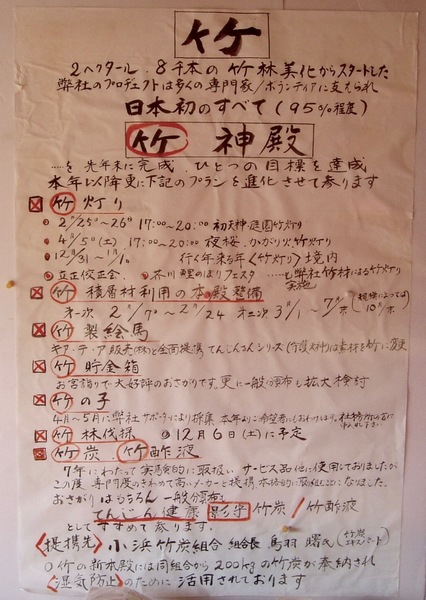 竹
2ヘクタール.8千本の竹林美化からスタートした
弊社のプロジェクトは多くの専門家/ボランティアに支えられ
日本初のすべて(95%程度)
竹 神殿
……を 先年末に完成.ひとつの目標を達成
本年以降更に下記のプランを進化させて参ります
竹 灯り
2/25~26日 17:00~20:00 初天神.庭園竹灯り
4月/5日(土) 17:00~20:00 夜桜.かがり火竹灯り
12月/31~1月/1日 行く年来る年〈竹灯り〉境内
立正佼正会. 芥川鯉のぼりフェスタ ……も弊社竹材による竹灯り
実施
竹 積層材利用の本殿整備
オ一次 2月/7日~2月/24 オ二次 3月/1~7月/末
竹 製絵馬
竹 貯金箱
お宮詣りで大好評のおさがりです.更に一般頒布も拡大検討
竹 の子
4月~5月に弊社サポーターにより採集 本年よりご希望者にもおわけします.
竹 林伐採 12月6日(土)に予定
竹 炭/竹 酢液
7年にわたって実験的に取扱い サービス品他に使用しておりましたが
この度 専門度のきわめて高いメーカーと提携 本格的に取組むことになりました。
おさがり はもちろん 一般頒布を
てんじん健康 竹炭/竹酢液
としてすすめて参ります.
〈提携先〉 小浜竹炭組合 組合長 鳥羽 曙氏(竹炭エキスパート)
〇竹の新本殿には同組合から200kgの竹炭が奉納され
〈湿気防止〉のために 活用されております